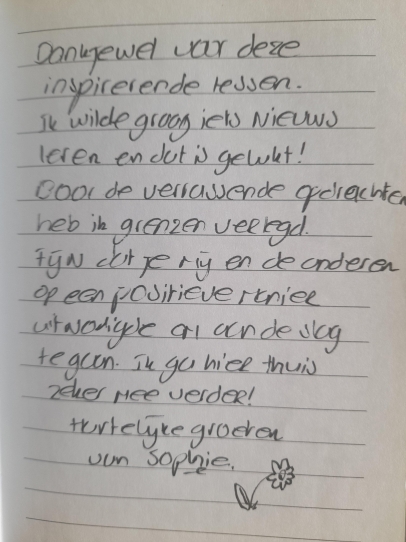 Dankjewel voor deze
inspirerende lessen.
Ik wilde graag iets Nieuws
leren en dat is gelukt!
Door de verrassende opdrachten
heb ik grenzen verlegd.
Fijn dat je mij en de anderen
op een positieve manier
uitnodigde om aan de slag
te gaan. Ik ga hier thuis
zeker mee verder!
Hartelijke groeten
van Sophie.